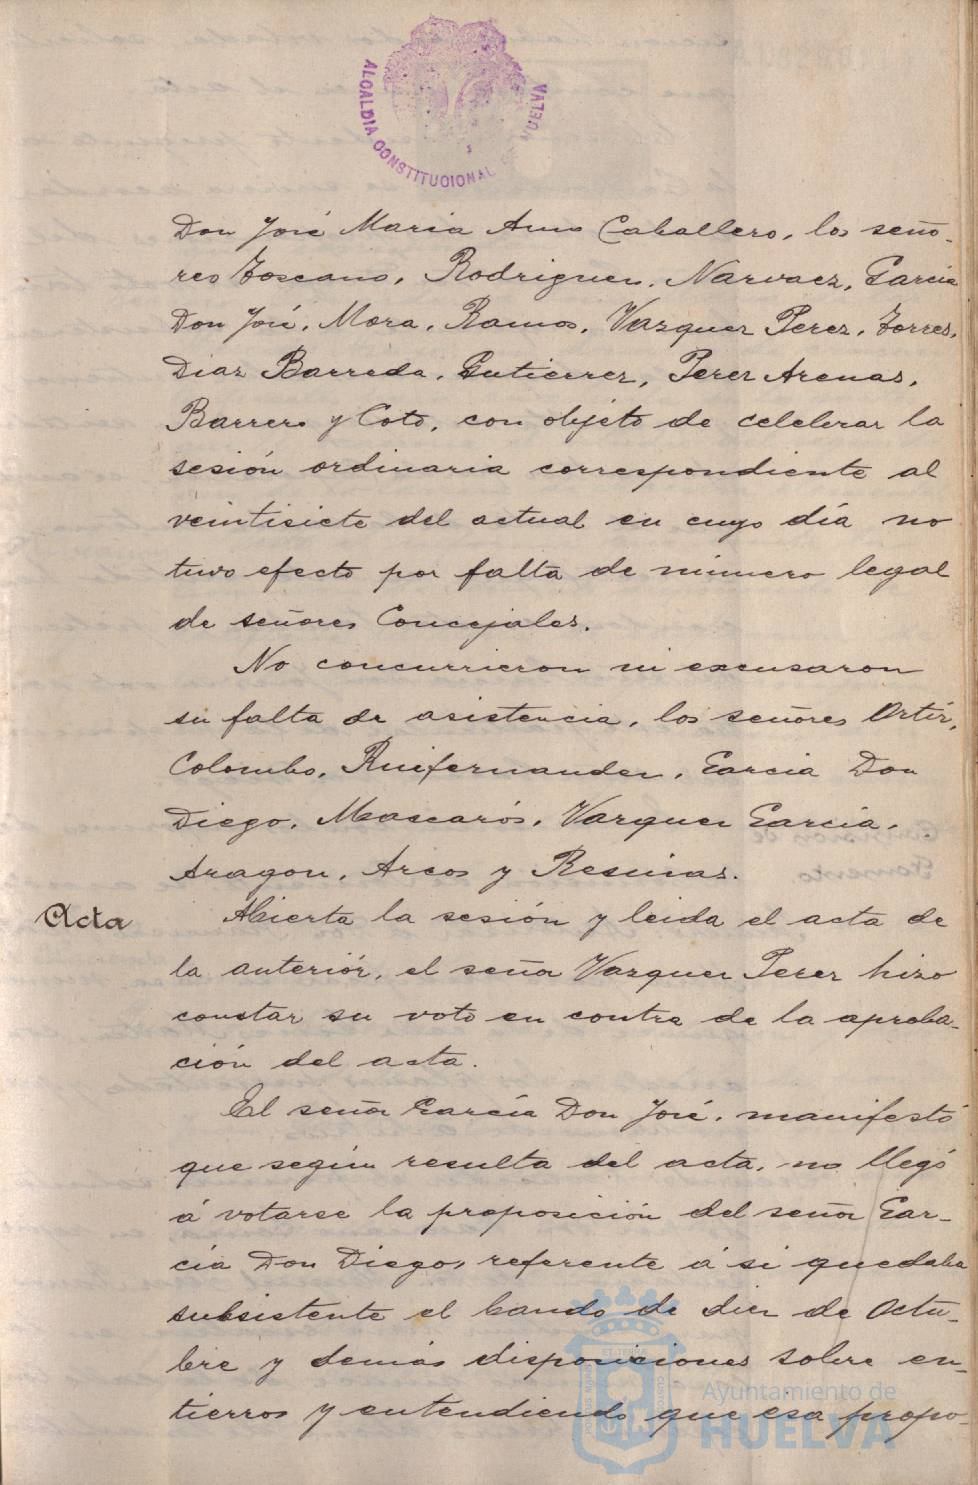 ALCALDIA CONSTITUCIONAL DE HUELVA
Don José Maria Amo Caballero, los seño-
res Toscano, Rodriguez, Narvaez, Garcia
Don José, Mora, Ramos, Vazquez Perez, Torres,
Diaz Barreda, Gutierrez, Perez Arenas,
Barrero y Coto, con objeto de celebrar la
sesión ordinaria correspondiente al
veintisiete del actual en cuyo día no
tuvo efecto por falta de número legal
de señores Concejales.
No concurrieron ni excusaron
su falta de asistencia, los señores Ortíz,
Colombo, Ruifernandez, Garcia Don
Diego, Mascarós, Vazquez Garcia,
Aragon, Arcos y Resinas.
Acta
Abierta la sesión y leida el acta de
la anteriór, el señor Vazquez Perez hizo
constar su voto en contra de la aproba-
ción del acta.
El señor García Don José, manifestó
que según resulta del acta, no llegó
á votarse la proposición del señor Gar-
cía Don Diego, referente á si quedaba
subsistente el bando de diez de Octu-
bre y demás disposiciones sobre en-
tierros y entendiendo que esa propo-
Ayuntamiento de
HUELVA